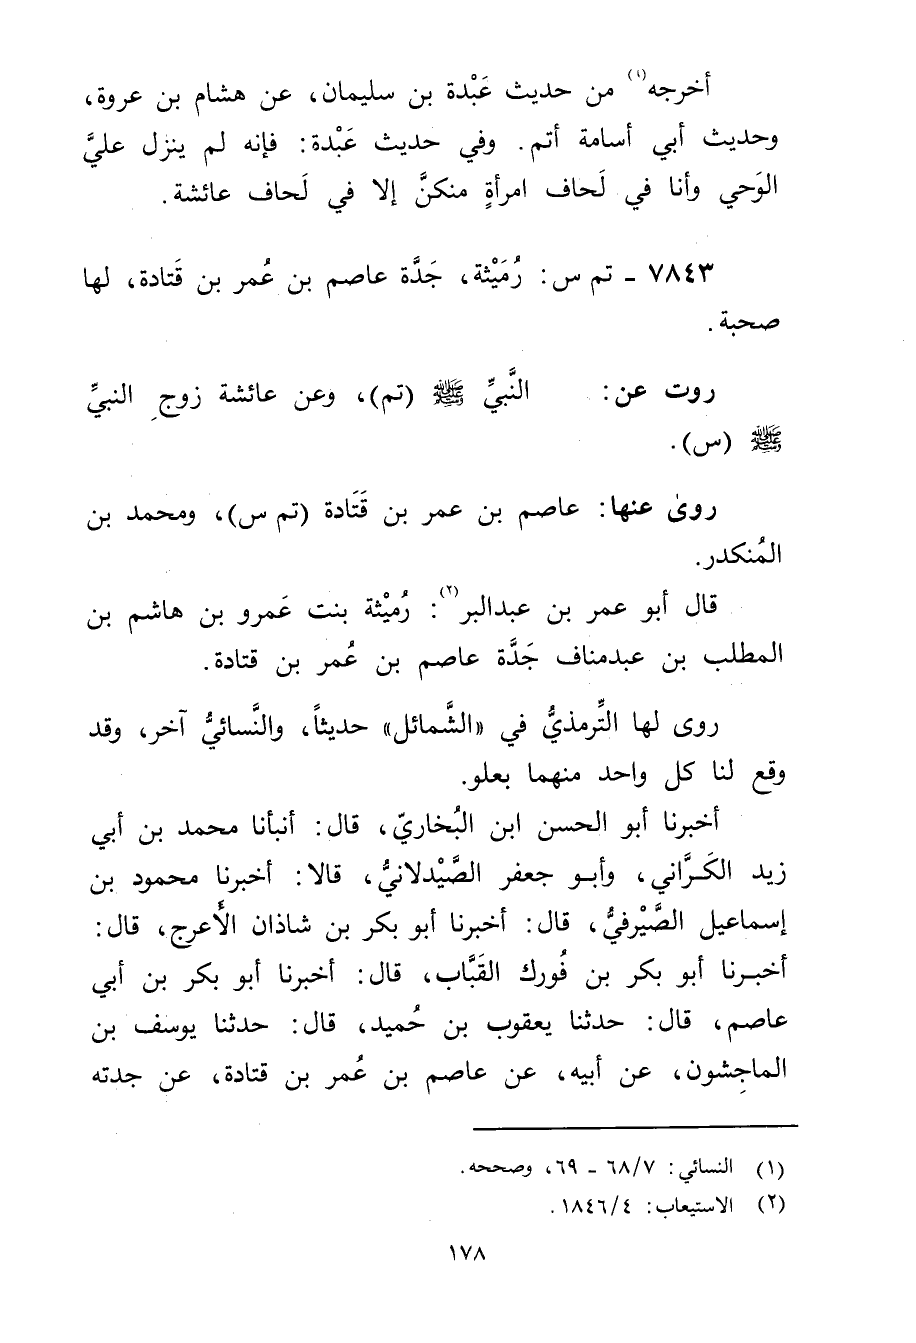 أخرجه(١) من حديث عَبْدة بن سليمان، عن هشام بن عروة،
وحديث أبي أسامة أتم. وفي حديث عَبْدة: فإنه لم ينزل عليَّ
الوَحي وأنا في لَحاف امرأةٍ منكنَّ إلا في لَحاف عائشة.
٧٨٤٣ ـ تم س: رُمَيْثة، جَدَّة عاصم بن عُمر بن قَتادة، لها
صحبة.
روت عن: النَّبيِّ ﷺ (تم)، وعن عائشة زوجِ النبيِّ
ﷺ (س).
روىٰ عنها: عاصم بن عمر بن قَتَادة (تم س)، ومحمد بن
المُنكدر.
قال أبو عمر بن عبدالبر(٢): رُمَيْثة بنت عَمرو بن هاشم بن
المطلب بن عبدمناف جَدَّة عاصم بن عُمر بن قتادة.
روى لها التِّرمذيُّ في «الشَّمائل» حديثاً، والنَّسائيُّ آخر، وقد
وقع لنا كل واحد منهما بعلو.
أخبرنا أبو الحسن ابن البُخاريّ، قال: أنبأنا محمد بن أبي
زيد الكَـرَّاني، وأبـو جعفر الصَّيْدلانيُّ، قالا: أخبرنا محمود بن
إسماعيل الصَّيْرفيُّ، قال: أخبرنا أبو بكر بن شاذان الأعرج، قال:
أخبـرنا أبو بكر بن فُورك القَبَّاب، قال: أخبرنا أبو بكر بن أبي
عاصم، قال: حدثنا يعقوب بن حُميد، قال: حدثنا يوسف بن
الماجِشون، عن أبيه، عن عاصم بن عُمر بن قتادة، عن جدته
(١) النسائي: ٦٨/٧ ـ ٦٩، وصححه.
(٢) الاستيعاب: ١٨٤٦/٤.
١٧٨